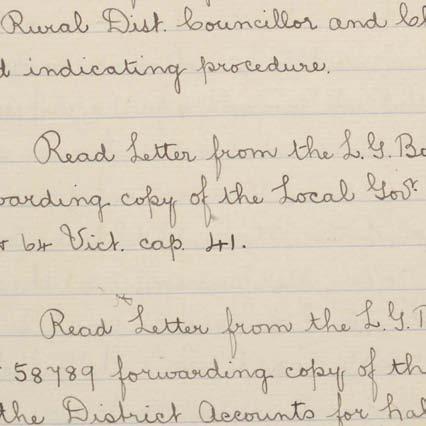 Rural Dist. Councillor and Cl
d indicating procedure.
Read Letter from the L.G. Bo
warding copy of the Local Govt.
& 64 Vict. cap. 41.
Read Letter from the L.G. B
58789 forwarding copy of th
the District Accounts for hal